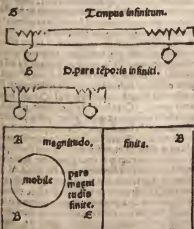 G Tempus infinitum.
G D. pars tēporis infiniti.
A magnitudo. finita. B
mobile
pars
magni
tudis
finite.
B E